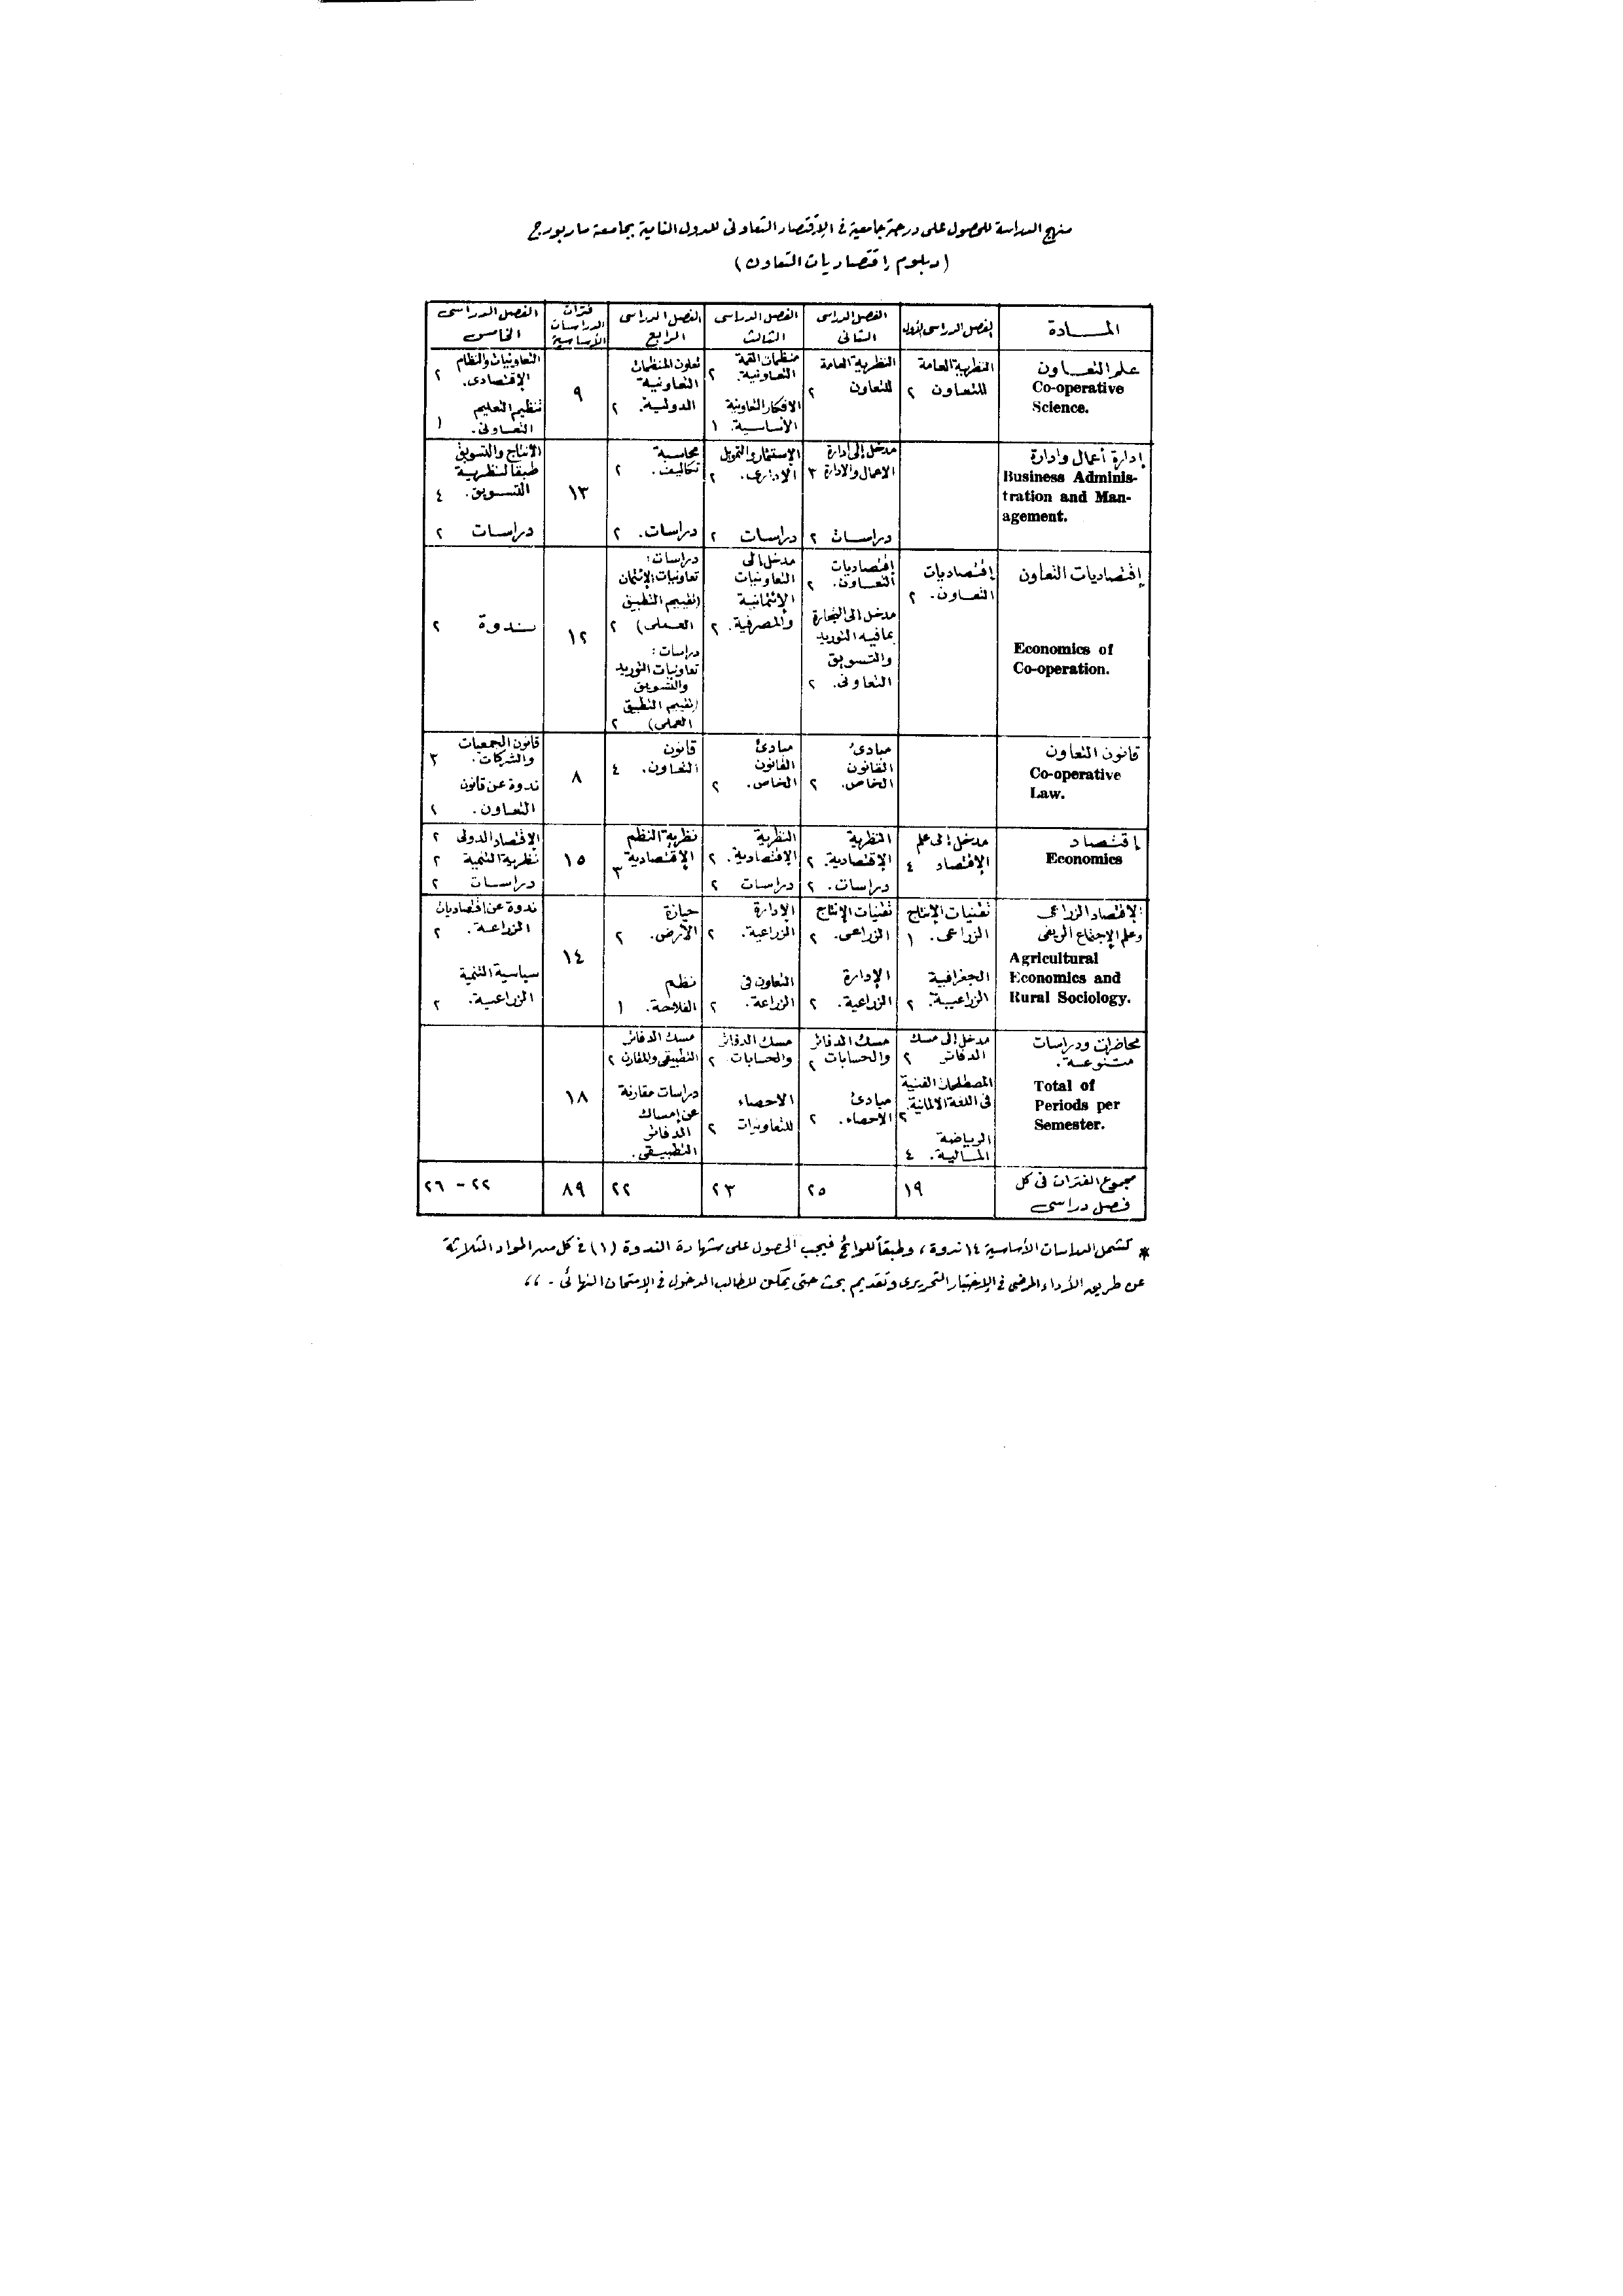 منهج الدراسة للحصول على درجة جامعية فى الإقتصاد التعاونى للدول النامية بجامعة ماربورج
(دبلوم إقتصاديات التعاون)
المــادة
الفصل الدراسى الأول
الفصل الدراسى
الثانى
الفصل الدراسى
الثالث
الفصل الدراسى
الرابع
فترات
الدراسات
الأساسية
الفصل الدراسى
الخامس
علم التعــاون
Co-operative
Science.
النظرية العامة
للتعاون ٢
النظرية العامة
للتعاون ٢
منظمات القمة
التعـاونية. ٢
الافكار التعاونية
الأساسية. ١
تعاون المنظمات
التعاونية
الدولية. ٢
٩
التعاونيات والنظام
الإقتصادى. ٢
تنظيم التعليم
التعـاونى. ١
إدارة أعمال وادارة
Business Adminis-
tration and Man-
agement.
مدخل إلى إدارة
الاعمال والادارة ٣
دراسات ٢
الإستثمار والتمويل
الإدارى. ٢
دراسات ٢
محاسبة
تكاليف. ٢
دراسات. ٢
١٣
الانتاج والتسويق
طبقا لنظرية
التسويق. ٤
دراسات ٢
إقتصاديات التعاون
Economics of
Co-operation.
إقتصاديات
التعـاون. ٢
إقتصاديات
التعـاون. ٢
مدخل الى التجارة
بما فيه التوريد
والتسويق
التعاونى. ٢
مدخل إلى
التعاونيات
الإئتمانية
والمصرفية. ٢
دراسات:
تعاونيات الإئتمان
(تقييم التطبيق
العـملى) ٢
دراسات:
تعاونيات التوريد
والتسويق
(تقييم التطبيق
العملى) ٢
١٢
نـدوة ٢
قانون التعاون
Co-operative
Law.
مبادئ
القانون
الخاص. ٢
مبادئ
القانون
الخاص. ٢
قانون
التعـاون. ٤
٨
قانون الجمعيات
والشركات. ٣
ندوة عن قانون
التعـاون. ٢
إقتصـاد
Economics
مدخل إلى علم
الإقتصاد ٤
النظرية
الإقتصادية. ٢
دراسات. ٢
النظرية
الإقتصادية. ٢
دراسات ٢
نظرية النظم
الإقتصادية ٣
١٥
الإقتصاد الدولى ٢
نظرية التنمية ٢
دراسـات ٢
الإقتصاد الزراعى
وعلم الإجتماع الريفى
Agricultural
Economics and
Rural Sociology.
تقنيات الإنتاج
الزراعى. ١
الجغرافية
الزراعيـة. ٢
تقنيات الإنتاج
الزراعى. ٢
الإدارة
الزراعية. ٢
الإدارة
الزراعية. ٢
التعاون فى
الزراعة. ٢
حيازة
الأرض. ٢
نظم
الفلاحة. ١
١٤
ندوة عن إقتصاديات
الزراعـة. ٢
سياسية التنمية
الزراعيـة. ٢
محاضرات ودراسات
متنوعـة.
Total of
Periods per
Semester.
مدخل إلى مسك
الدفاتر ٢
المصطلحات الفنية
فى اللغة الالمانية. ٢
الرياضة
المـالية. ٤
مسك الدفاتر
والحسابات ٢
مبادئ
الاحصاء. ٢
مسك الدفاتر
والحسابات ٢
الاحصاء
للتعاونيات ٢
مسك الدفاتر
التطبيقى والمقارن ٢
دراسات مقارنة
عن إمساك
الدفاتر
التطبيـقى.
١٨
مجموع الفترات فى كل
فصل دراسى
١٩
٢٥
٢٣
٢٢
٨٩
٢٢ - ٢٦
* تشمل الدراسات الأساسية ١٤ ندوة، وطبقاً للوائح فيجب الحصول على شهادة الندوة (١) فى كل من المواد الثلاثة
عن طريق الأداء المرضى فى الإختبار التحريرى وتقديم بحث حتى يمكن للطالب الدخول فى الإمتحان النهائى. ،،